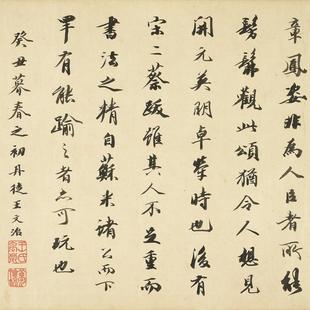 章鳳姿非為人臣者所能
髣髴觀此頌猶令人想見
開元英明卓犖時也後有
宋二蔡跋雖其人不足重而
書法之精自蘇米諸公而下
罕有能踰之者亦可玩也
癸丑暮春之初丹徒王文治